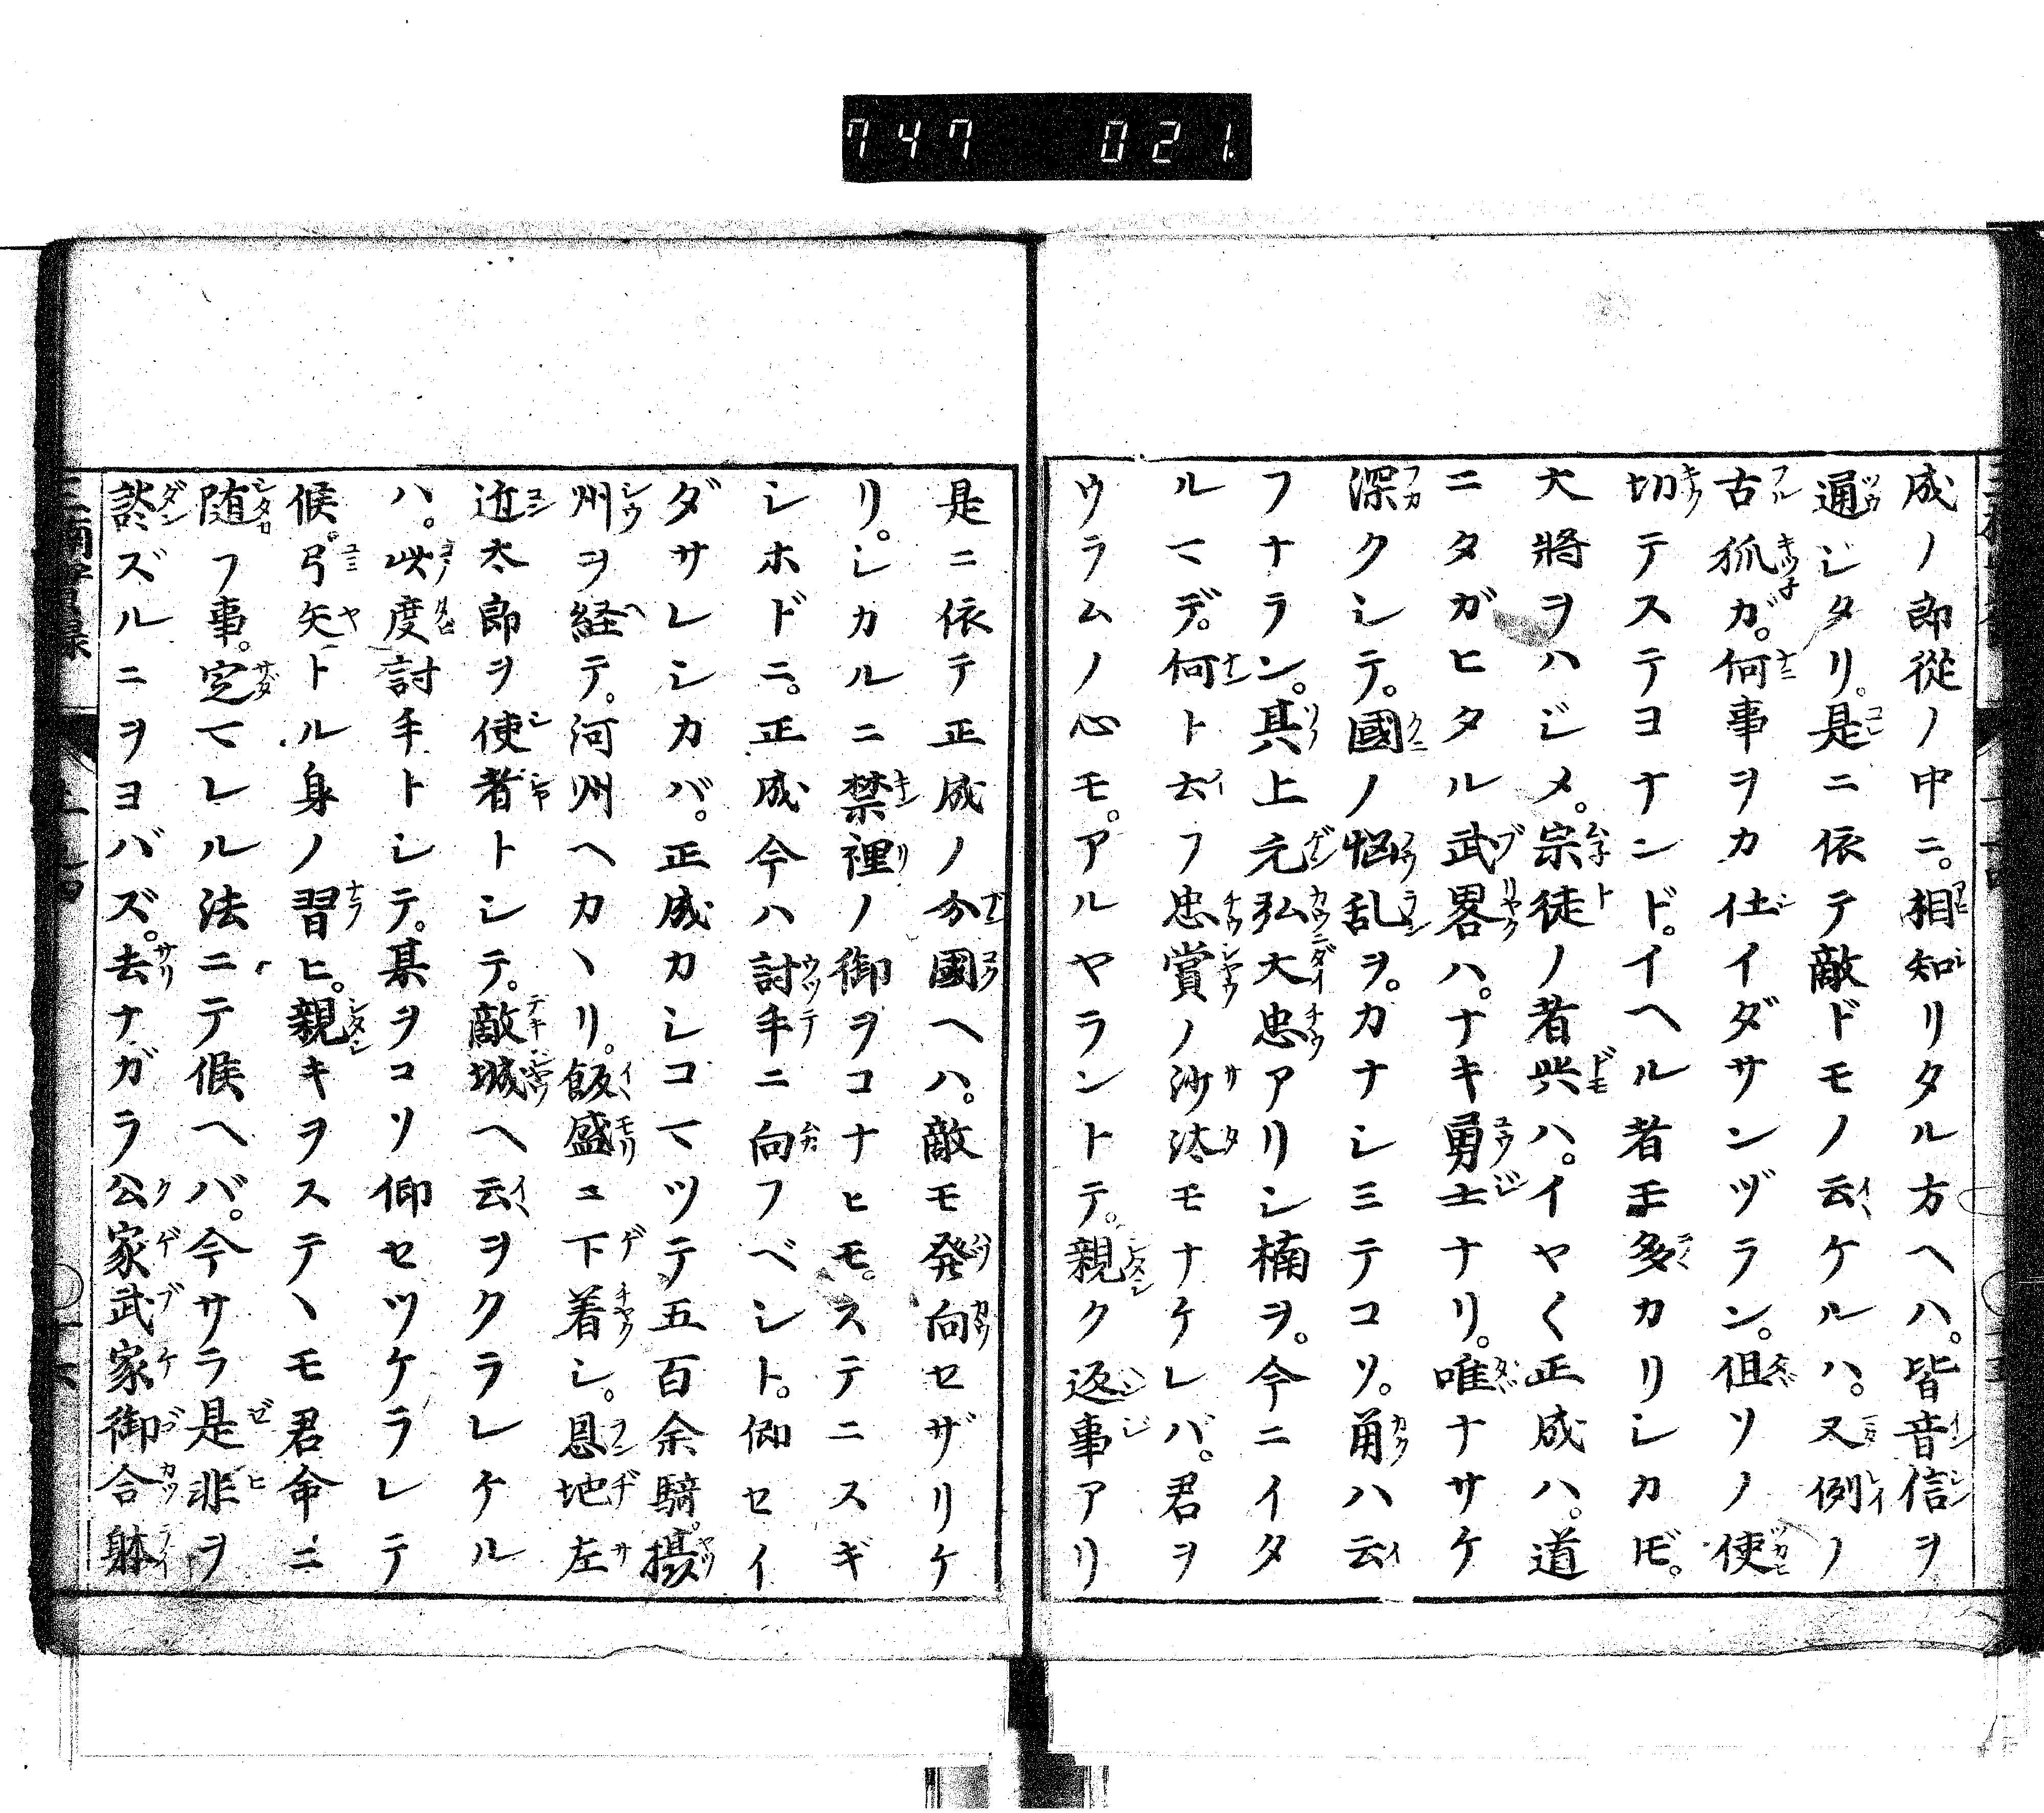 747 021
成ノ郎從ノ中ニ。相知リタル方ヘハ。皆音信ヲ
通ジタリ。是ニ依テ敵ドモノ云ケルハ。又例ノ
古狐ガ。何事ヲカ仕イダサンヅラン。但ソノ使
切テステヨナンド。イヘル者モ多カリシカドモ。
大將ヲハジメ。宗徒ノ者共ハ。イヤ〱正成ハ。道
ニタガヒタル武畧ハ。ナキ勇士ナリ。唯ナサケ
深クシテ。國ノ悩乱ヲ。カナシミテコソ。角ハ云
フナラン。其上元弘大忠アリシ楠ヲ。今ニイタ
ルマデ。何ト云フ忠賞ノ沙汰モナケレバ。君ヲ
ウラムノ心モ。アルヤラントテ。親ク返事アリ
是ニ依テ正成ノ分國ヘハ。敵モ発向セザリケ
リ。シカルニ禁裡ノ御ヲコナヒモ。ステニスギ
シホドニ。正成今ハ討手ニ向フベシト。仰セイ
ダサレシカバ。正成カシコマツテ五百余騎。摂
州ヲ経テ。河州ヘカヽリ。飯盛ニ下着シ。恩地左
近太郎ヲ使者トシテ。敵城ヘ云ヲクラレケル
ハ。此度討手トシテ。某ヲコソ仰セツケラレテ
候。弓矢トル身ノ習ヒ。親キヲステヽモ君命ニ
随フ事。定マレル法ニテ候ヘバ。今サラ是非ヲ
談ズルニヲヨバズ。去ナガラ公家武家御合躰